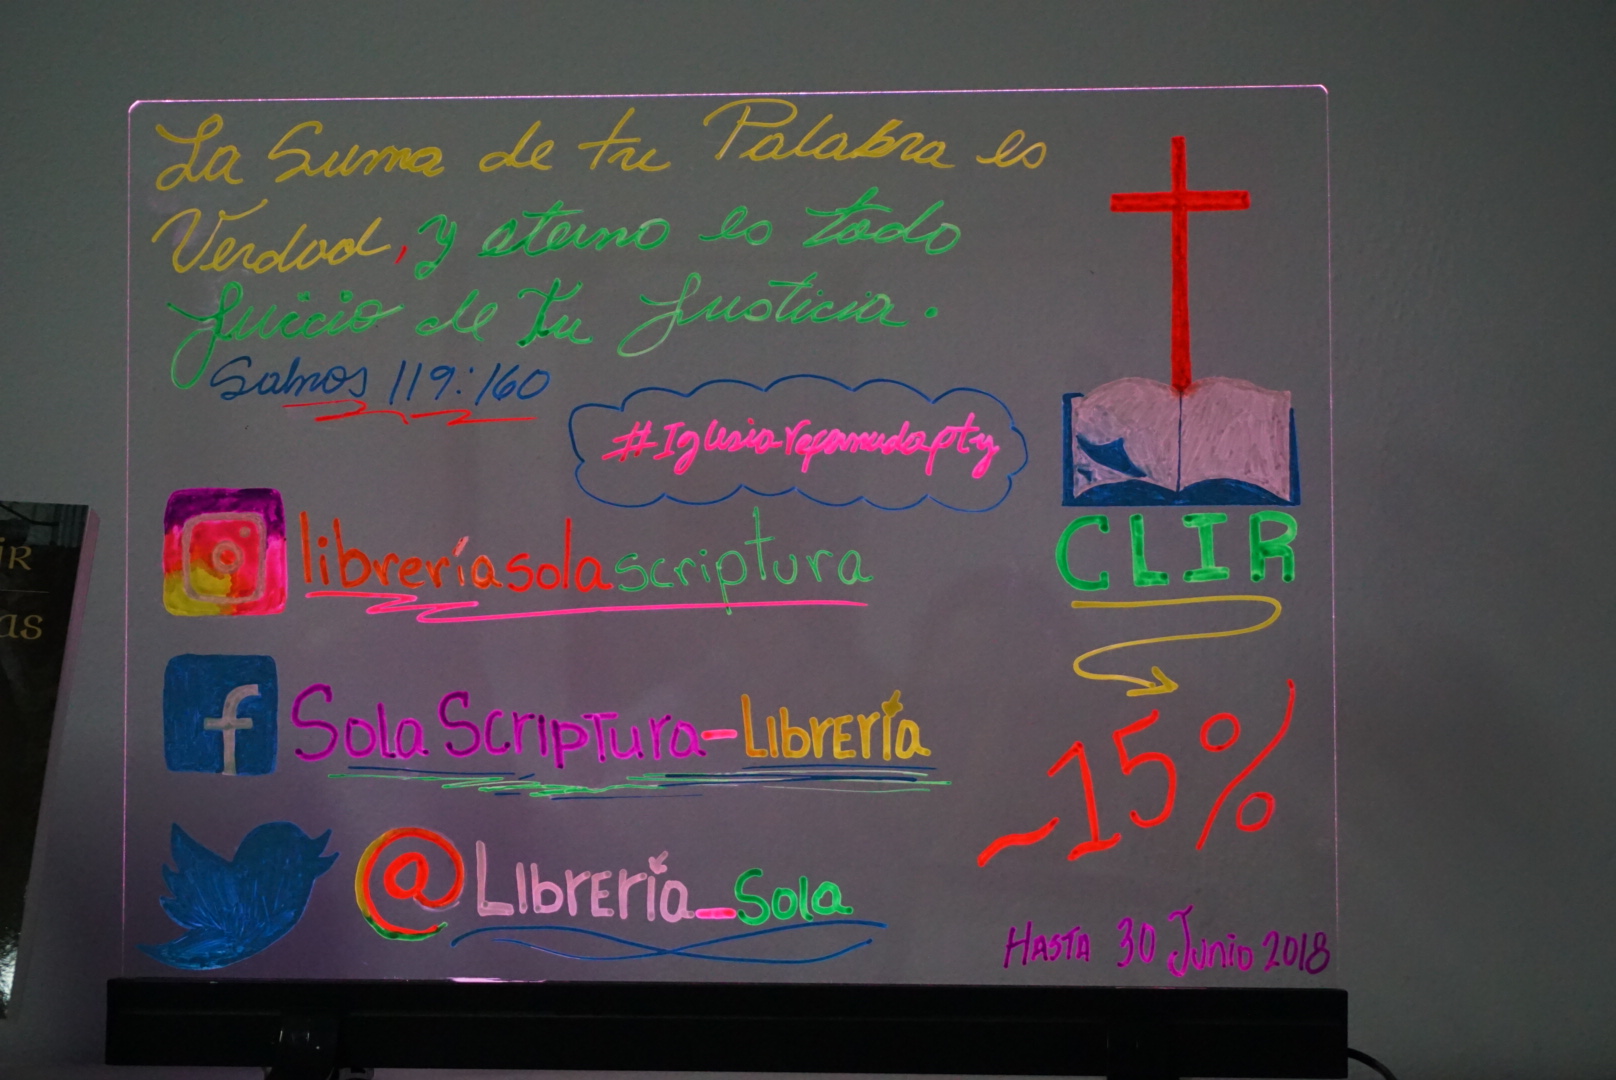 La Suma de tu Palabra es
Verdad, y eterno es todo
Juicio de Tu Justicia.
Salmos 119:160
#Iglesiareformadapty
libreríasolascriptura
Sola Scriptura-Librería
@Librería_Sola
CLIR
~15%
Hasta 30 Junio 2018
IR
as